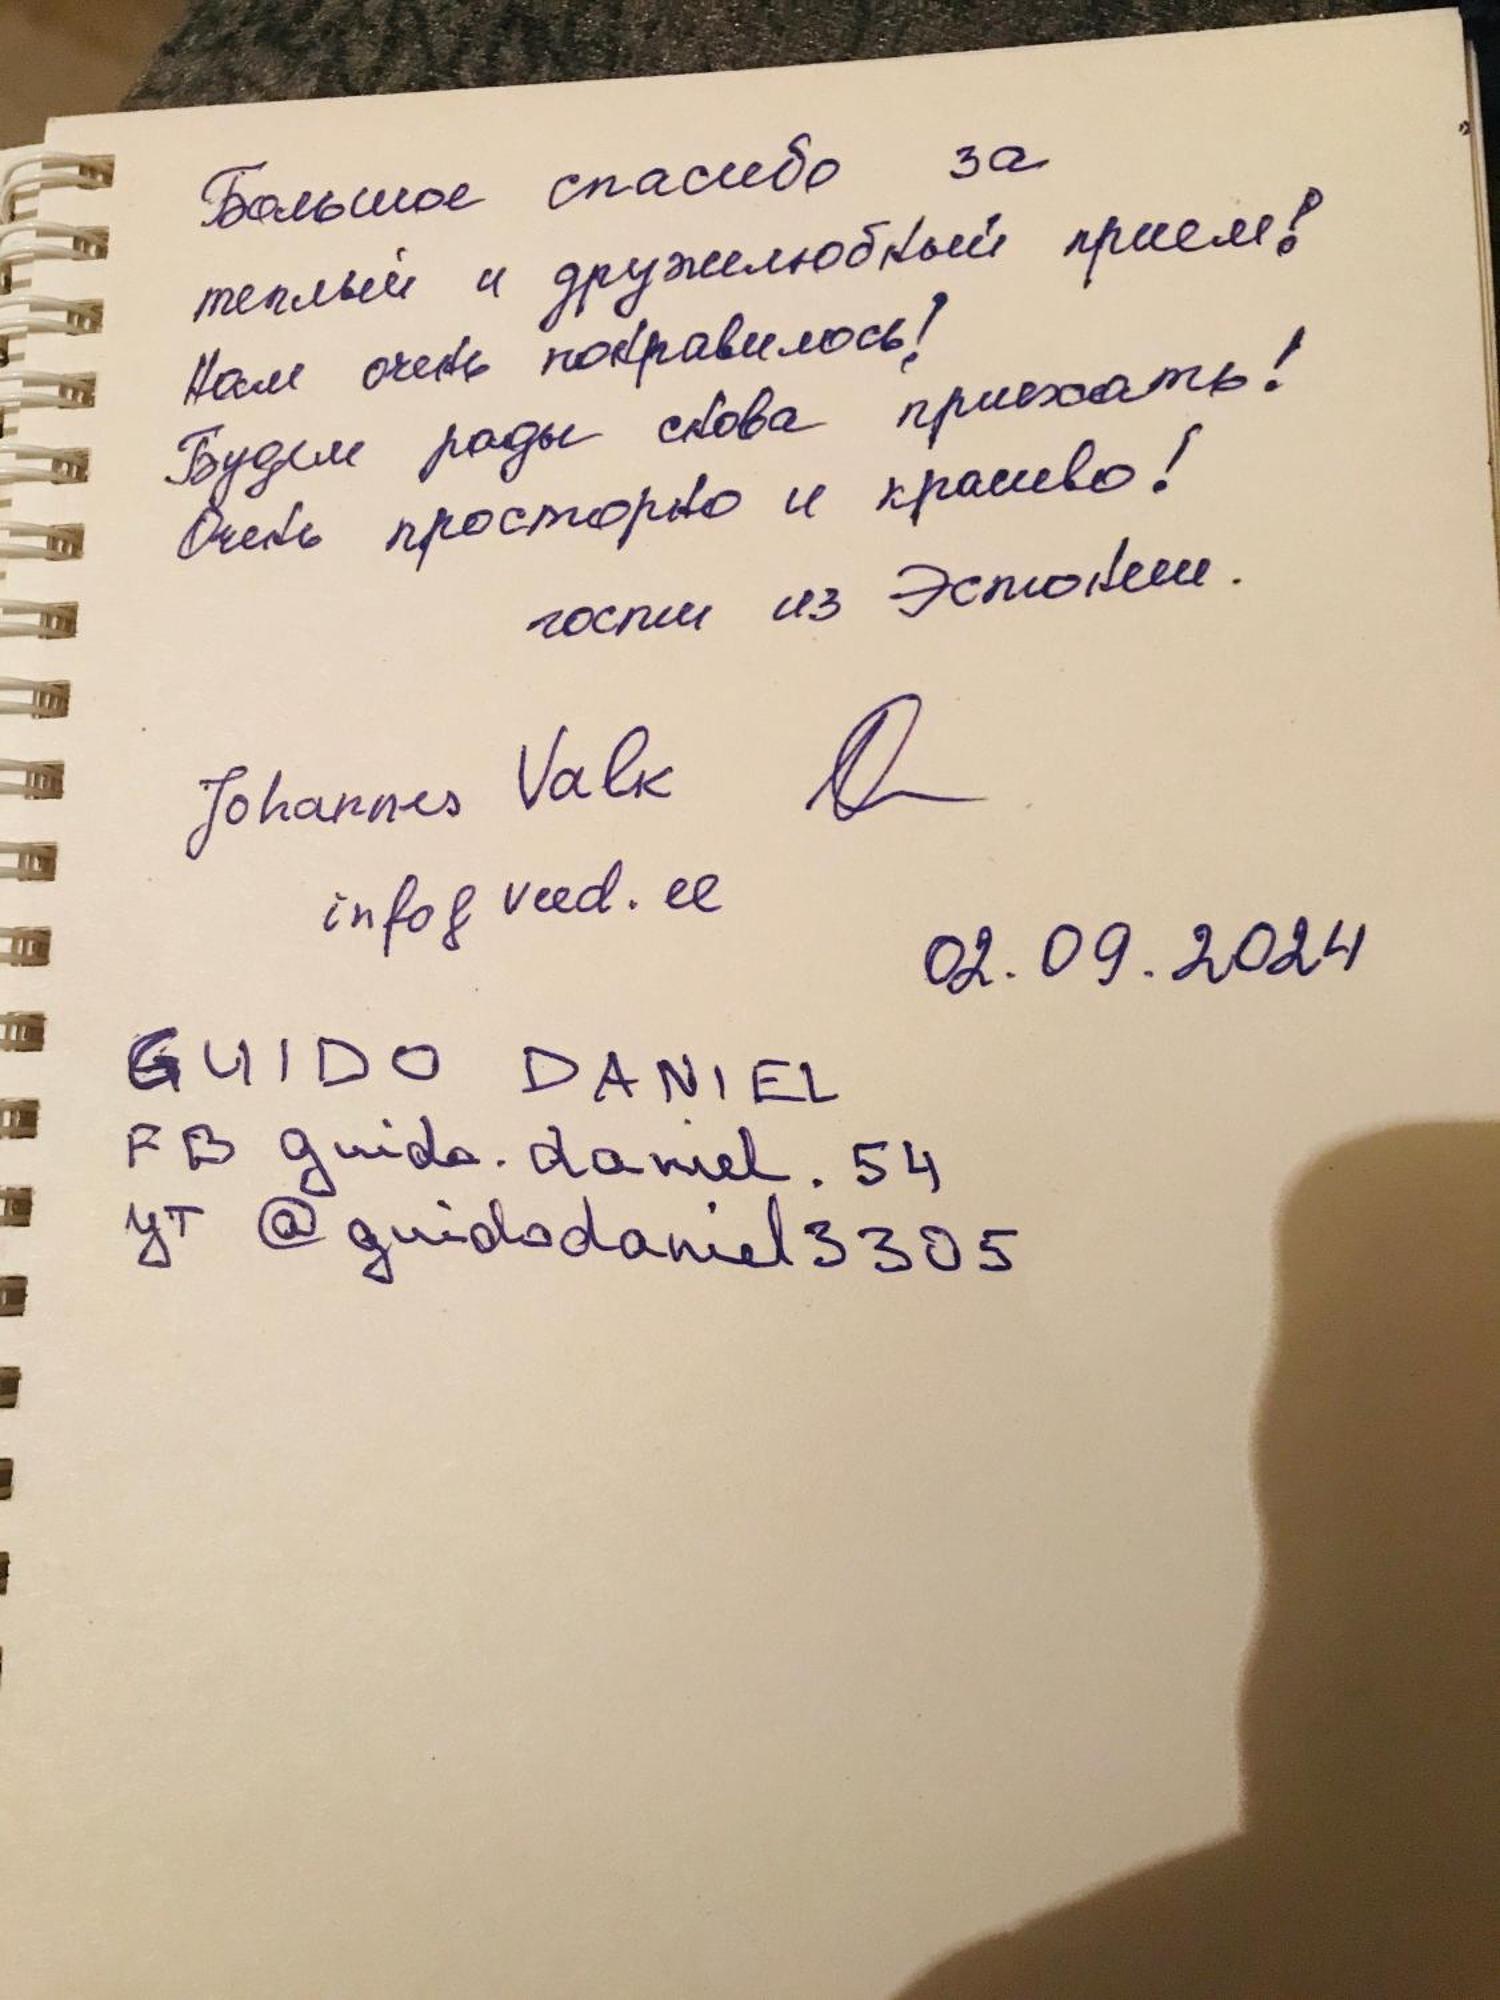 Большое спасибо за
теплый и дружелюбный прием!
Нам очень понравилось!
Будем рады снова приехать!
Очень просторно и красиво!
гости из Эстонии.
Johannes Valk
info@veed.ee
02.09.2024
GUIDO DANIEL
FB guido.daniel.54
YT @guidodaniel3305